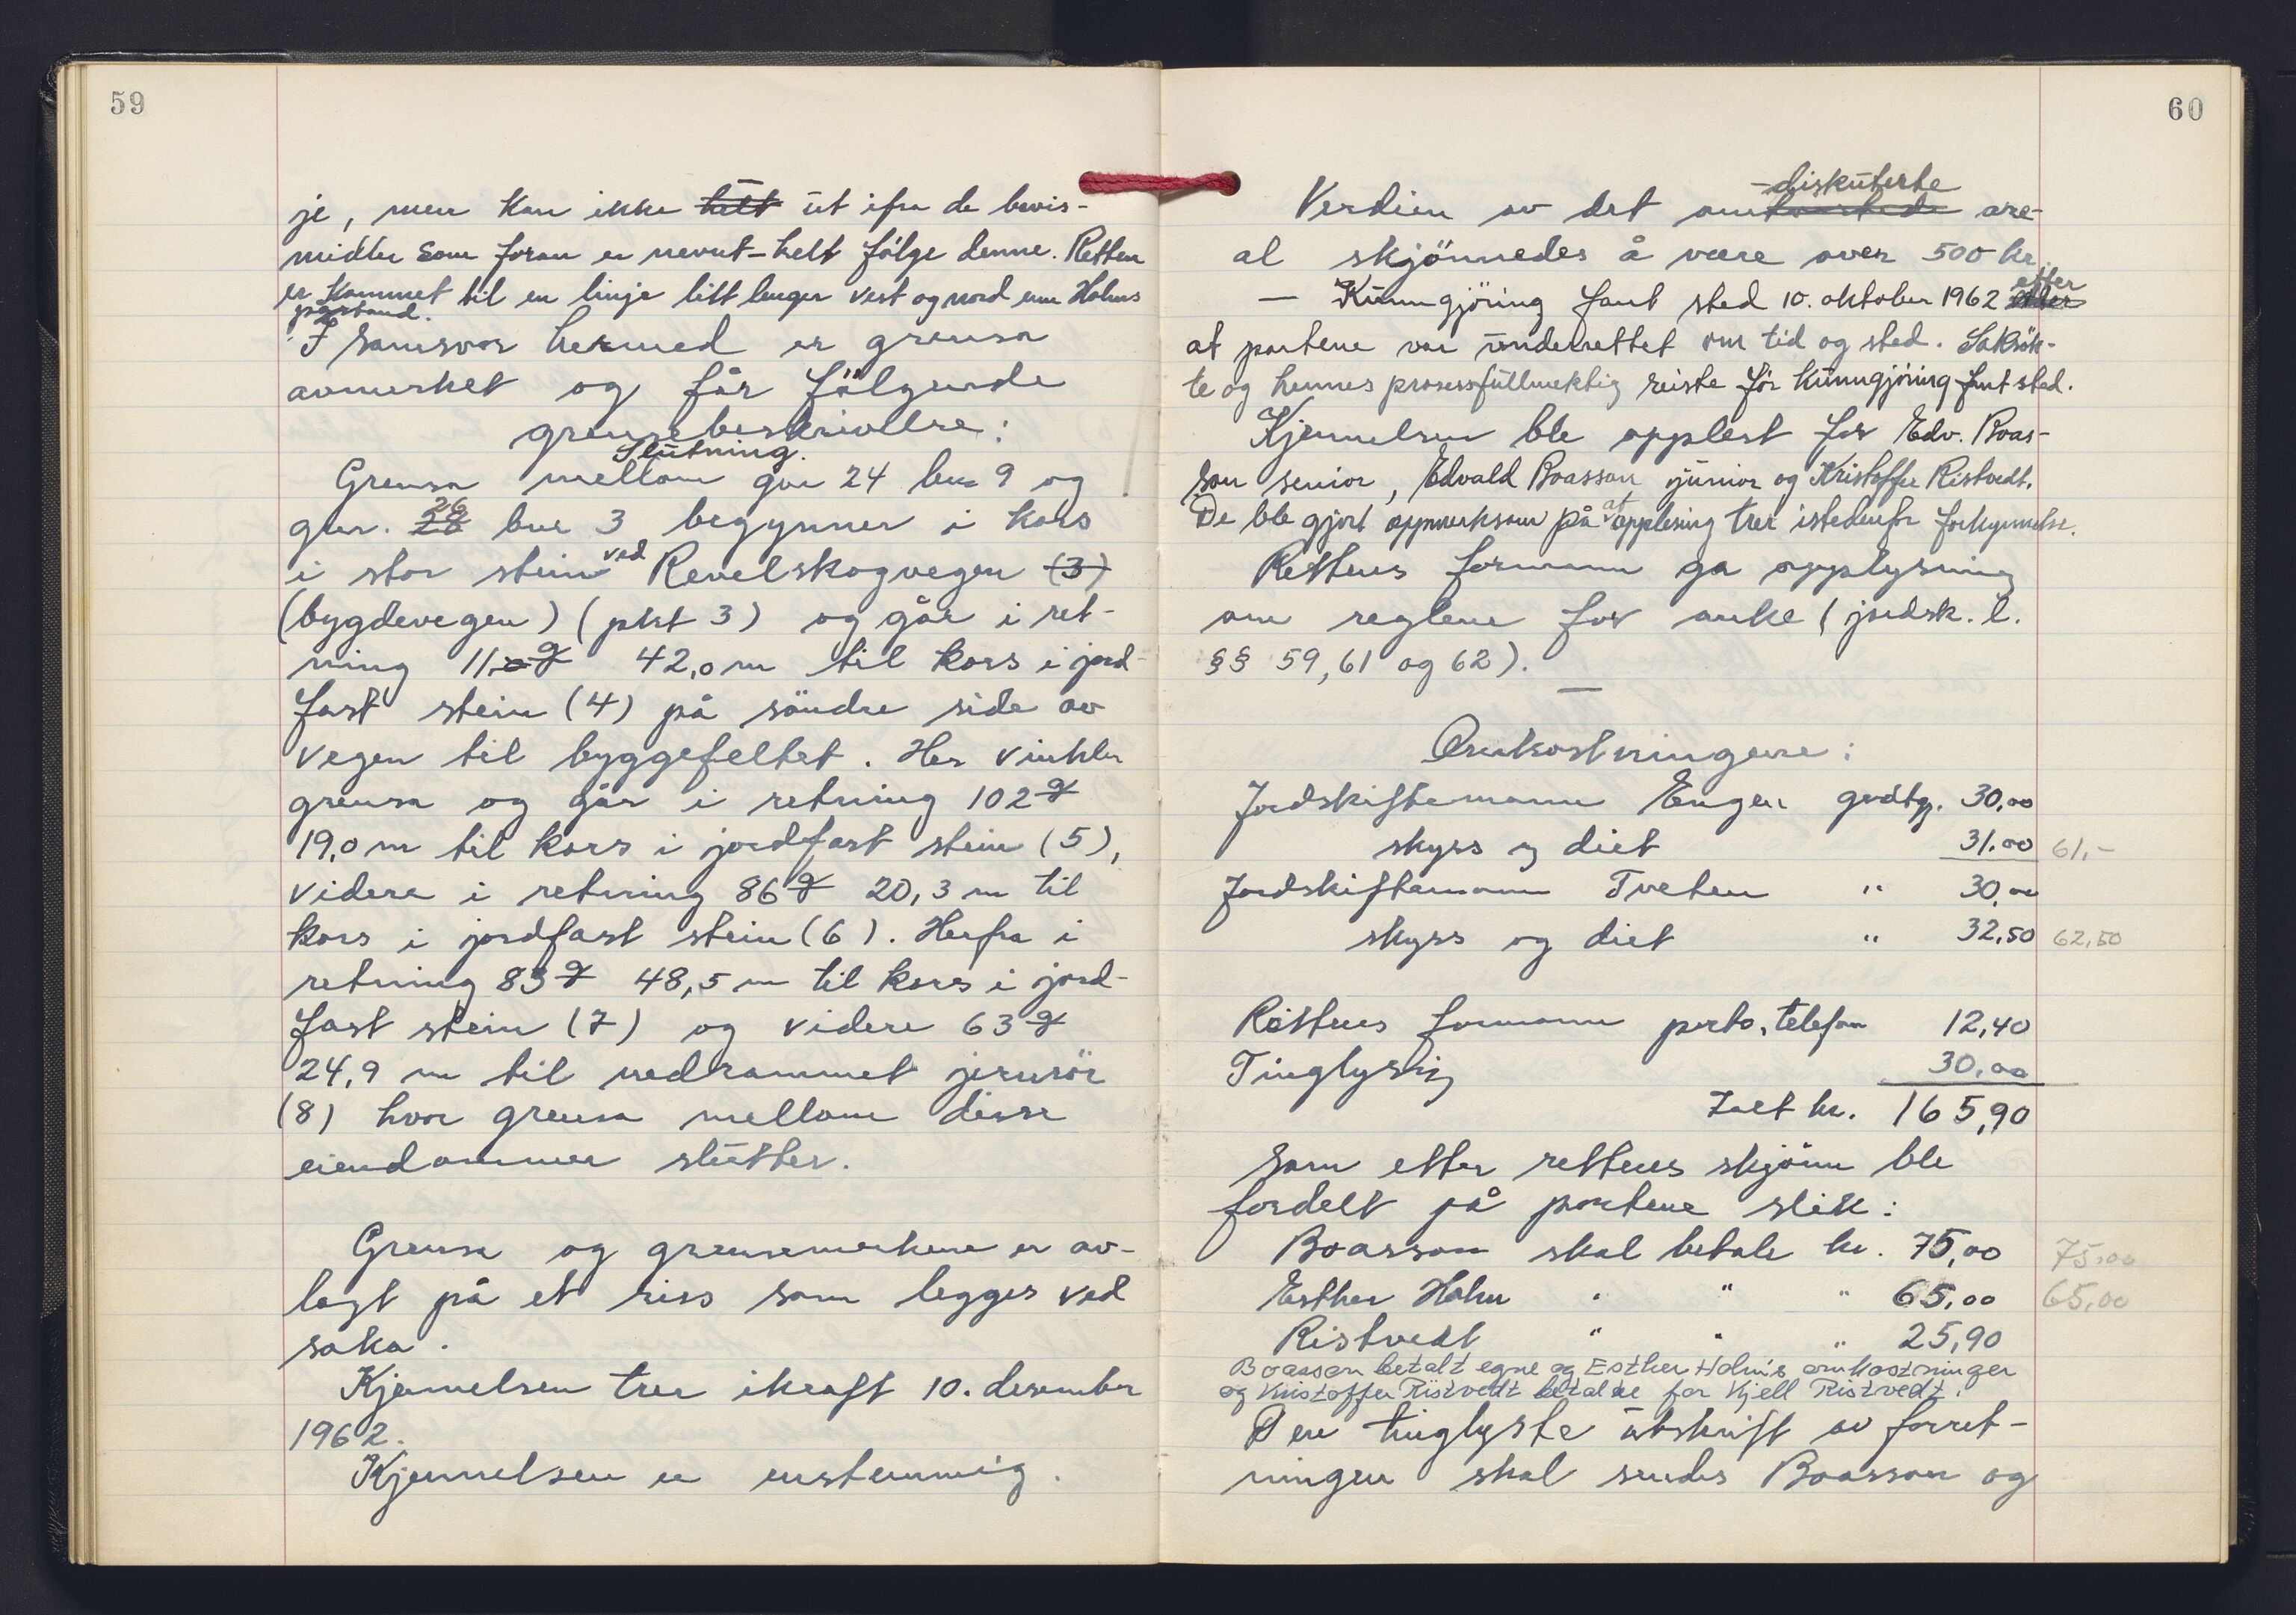 59
je, men kan ikke helt ut ifra de bevis-
midler som foran er nevnt - helt følge denne. Retten
er kommet til en linje litt lenger vest og nord enn Holms
påstand.
I samsvar hermed er grensa
avmerket og får følgende
grensebeskrivelse:
Slutning.
Grensa mellom gnr 24 bnr 9 og
26
gnr. 28 bnr 3 begynner i kors
i stor stein ved Revelskogvegen (3)
(bygdevegen) (pkt 3) og går i ret-
ning 11,0 g 42,0 m til kors i jord-
fast stein (4) på söndre side av
vegen til byggefeltet. Her vinkler
grensa og går i retning 102 g
19,0 m til kors i jordfast stein (5),
videre i retning 86 g 20,3 m til
kors i jordfast stein (6). Herfra i
retning 83 g 48,5 m til kors i jord-
fast stein (7) og videre 63 g
24,9 m til nedrammet jernrör
(8) hvor grensa mellom disse
eiendommer slutter.
Grensa og grensemerkene er av-
lagt på et riss som legges ved
saka.
Kjennelsen trer ikraft 10. desember
1962.
Kjennelsen er enstemmig.
60
- diskuterte
Verdien av det omtvistede are-
al skjönnedes å være over 500 kr.
etter
- Kunngjöring fant sted 10. oktober 1962
at partene var underrettet om tid og sted. Saksök-
te og hennes prosessfullmektig reiste før kunngjöring fant sted.
Kjennelsen ble opplest for Edv. Boas-
son senior, Edvald Boasson junior og Kristoffer Ristvedt.
De ble gjort oppmerksom på at opplesing trer istedenfor forkynnelse.
Rettens formann ga opplysning
om reglene for anke (jordsk. l.
§§ 59, 61 og 62).
Omkostningene:
Jordskiftemann Enger godtgj. 30,00
skyss og diet 31.00 61,-
Jordskiftemann Tveten " 30,00
skyss og diet " 32,50 62,50
Rettens formann porto, telefon 12,40
Tinglysing 30,00
Ialt kr. 165,90
som etter rettens skjönn ble
fordelt på partene slik:
Boasson skal betale kr. 75,00 75,00
Esther Holm " " " 65,00 65,00
Ristvedt " " " 25,90
Boasson betalt egne og Esther Holm's omkostninger
og Kristoffer Ristvedt betalte for Kjell Ristvedt.
Den tinglyste utskrift av forret-
ningen skal sendes Boasson og